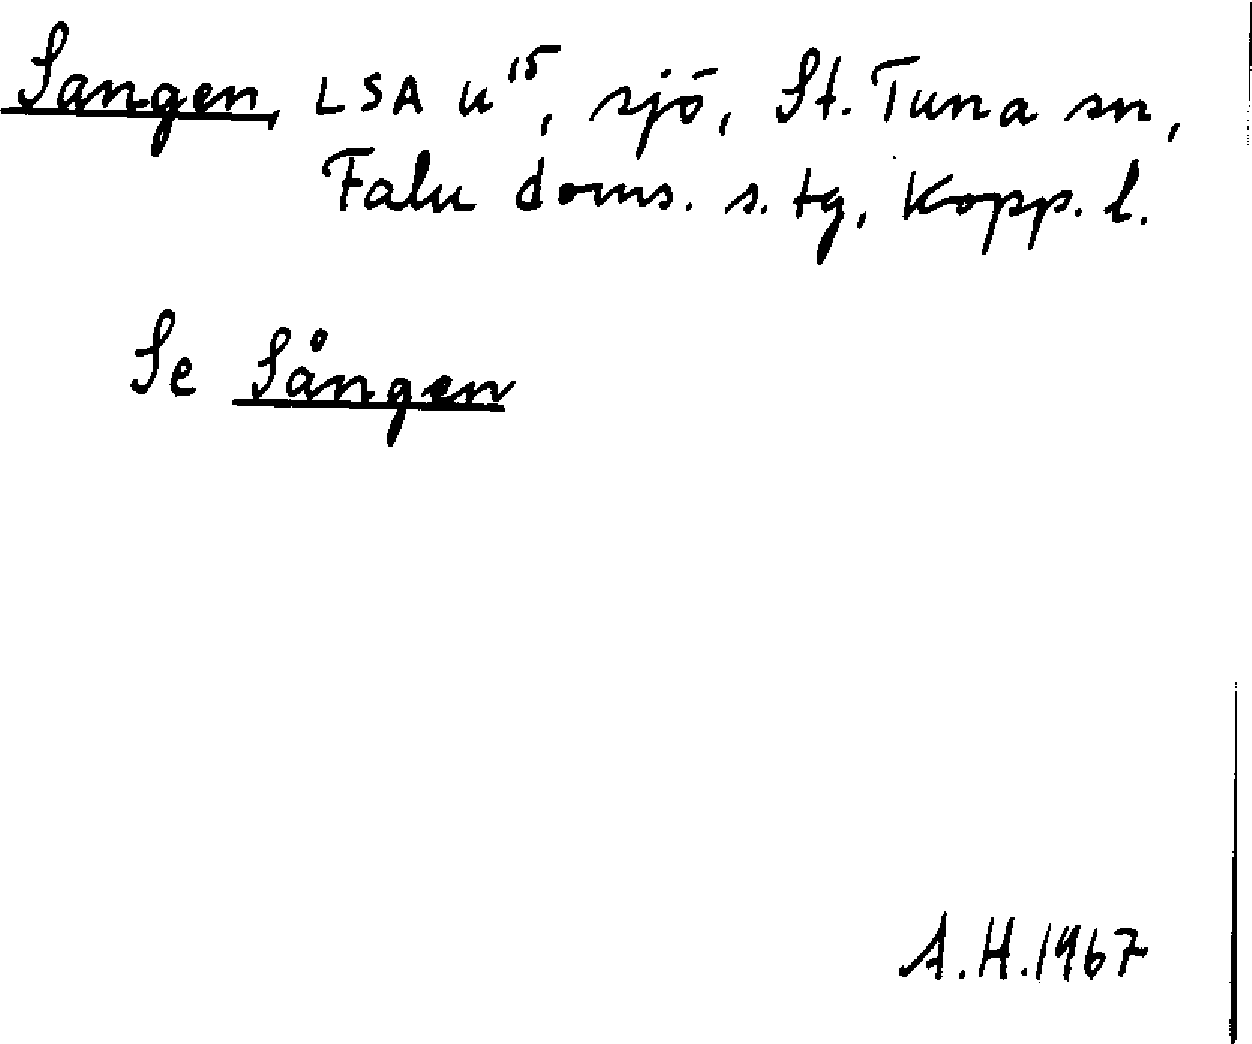 Sangen, LSA u¹⁵, sjö, St. Tuna sn,
Falu doms. s. tg, Kopp. l.
Se Sången
A.H.1967